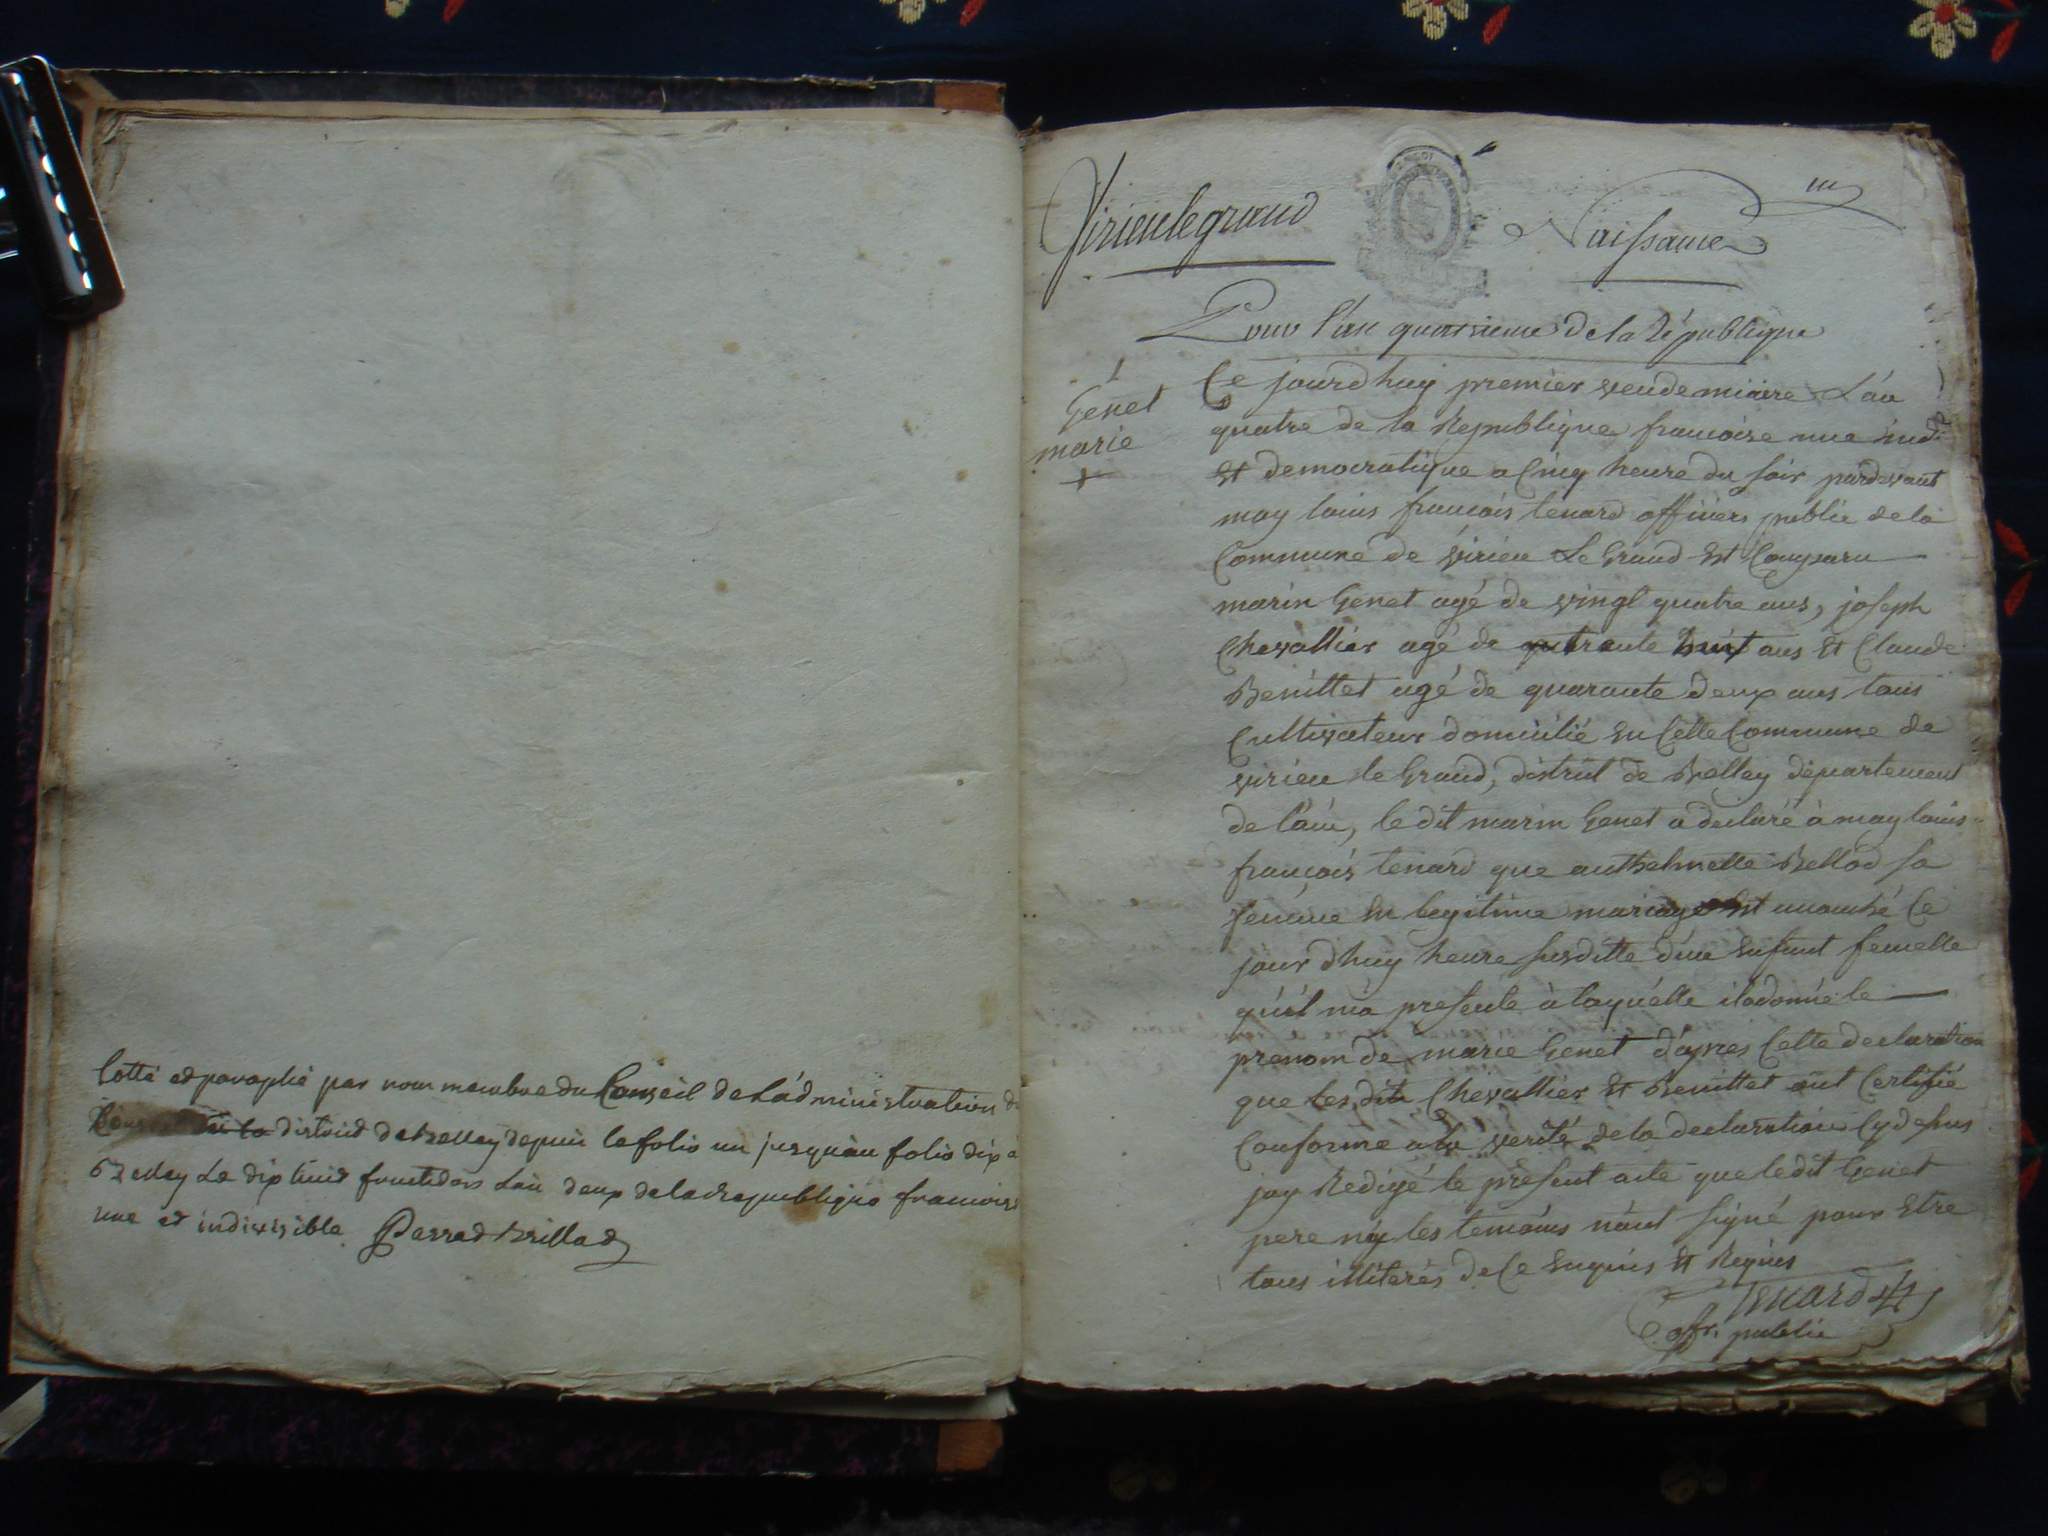 Cotté et paraphé par nous membre du Conseil de Ladministration du
district de Belley depuis le folio un jusquau folio dix a
Belley Le dix huit fructidors Lan deux de la republique francoise
une et indivisible. Parrad Brillad
Virieulegrand
Naissance
Pour l'an quatrieme de la République
1
Genet
marie
+
Ce jourdhuy premier vendemiaire L'an
quatre de la Republique francoise une ind
Et democratique a Cinq heure du soir pardevant
moy louis françois tenard officiers public de la
Commune de virieu Le Grand Est Comparu
marin Genet agé de vingt quatre ans, joseph
Chevallier agé de trante huit ans Et Claude
Benittet agé de quarante deux ans tous
Cultivateur domicilié En Cette Commune de
virieu le Grand, district de Belley département
de l'ain, le dit marin Genet a declaré à moy louis
françois tenard que anthelmette Bellod sa
femme En legitime mariage Est accouché Ce
jour dhuy heure susditte dune Enfant femelle
qu'il ma presenté à laquelle iladonné le
prenom de marie Genet d'apres Cette declaration
que les dits Chevallier Et Benittet ont Certifié
Conforme a la verité de la declaration Cy dessus
jay Redigé le present acte que ledit Genet
pere ny les temoins n'ont signé pour Etre
tous illiterés de Ce Enquis Et Requis
Tenard
offr. public